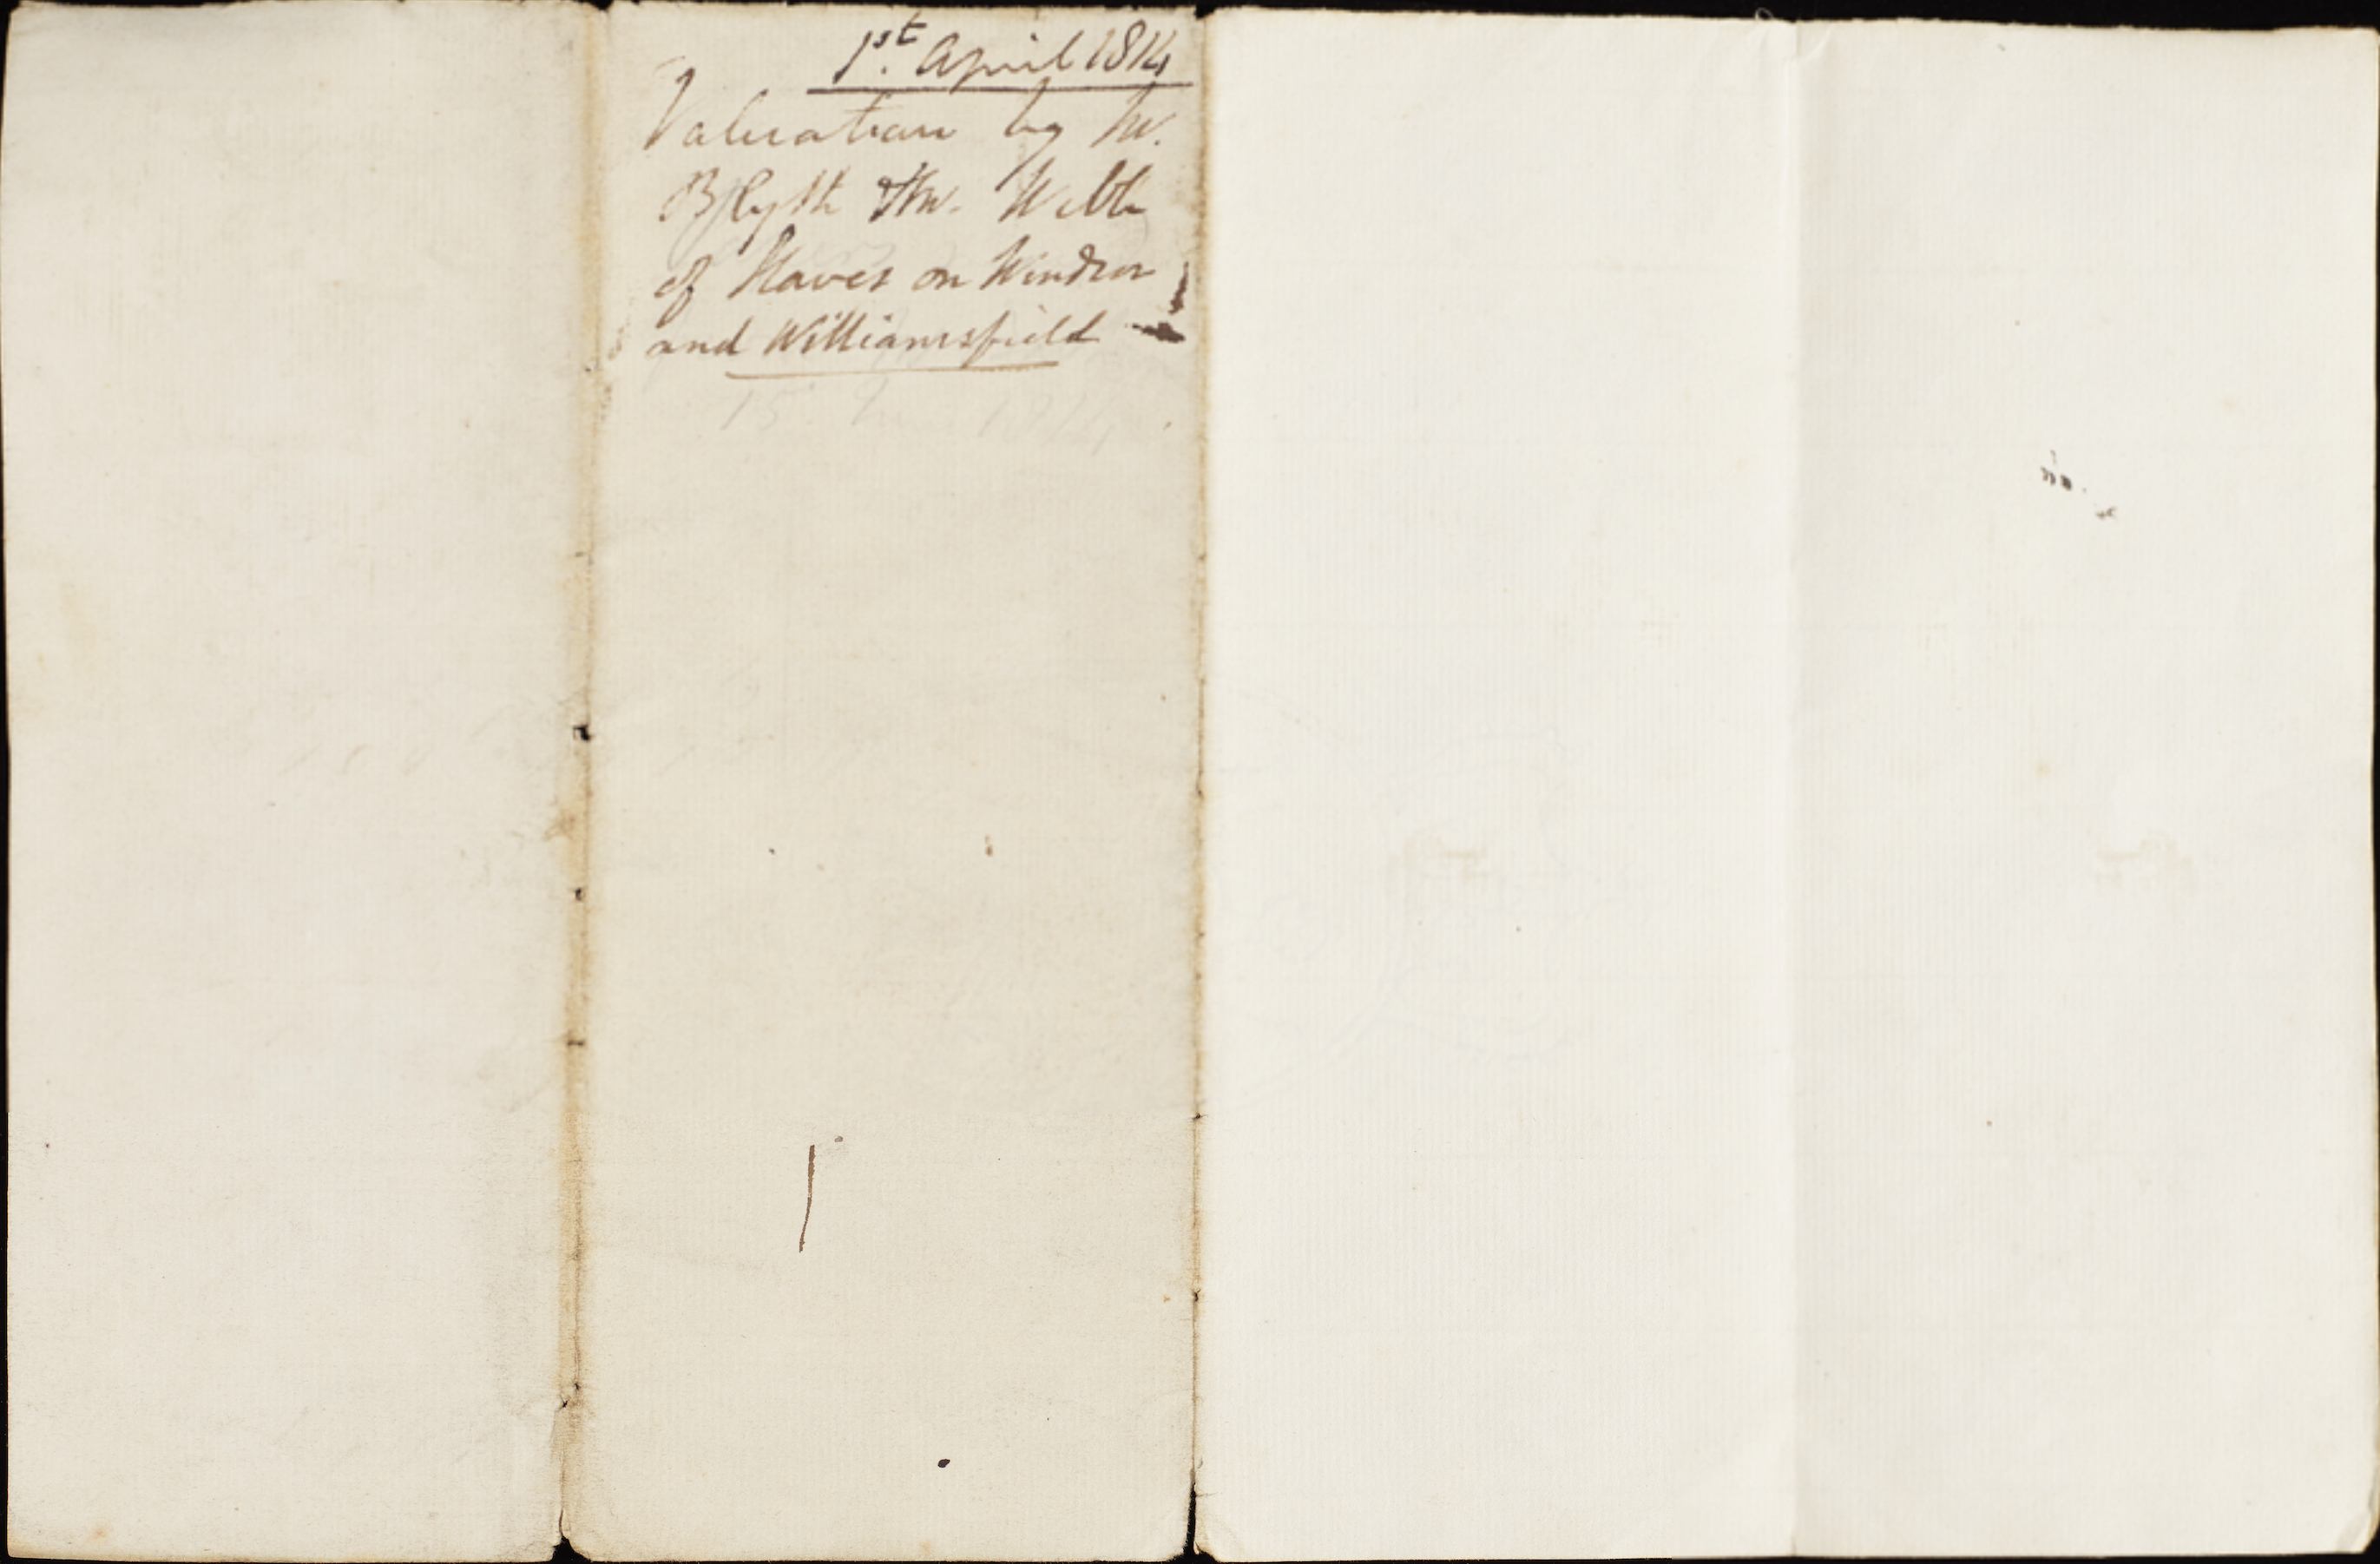 1st. April 1814
Valuation by Mr.
Blyth & Mr. Webb
of Slaves on Windsor
and Williamsfield